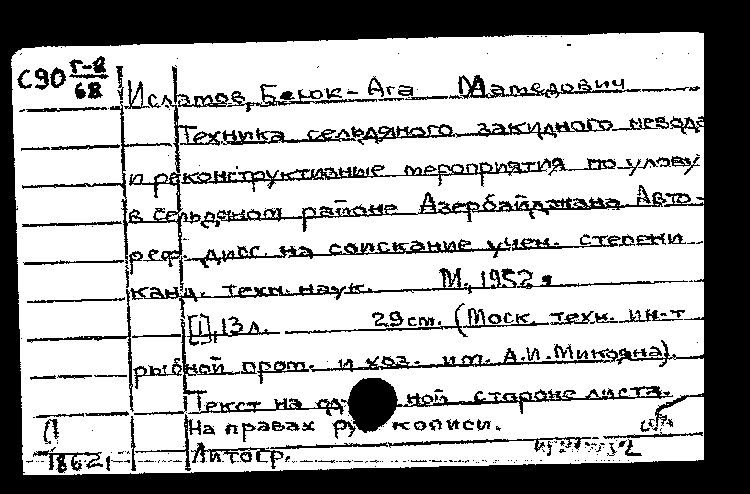 С90 Г-8/68
Исламов, Беюк-Ага Мамедович
Техника сельдяного закидного невода
и реконструктивные мероприятия по улову
в сельдяном районе Азербайджана Авто-
реф. дисс. на соискание учен. степени
канд. техн. наук. М., 1952.
[1], 13 л. 29 см. (Моск. техн. ин-т
рыбной пром. и хоз. им. А.И. Микояна).
Текст на одной стороне листа.
На правах рукописи.
18621 Литогр.